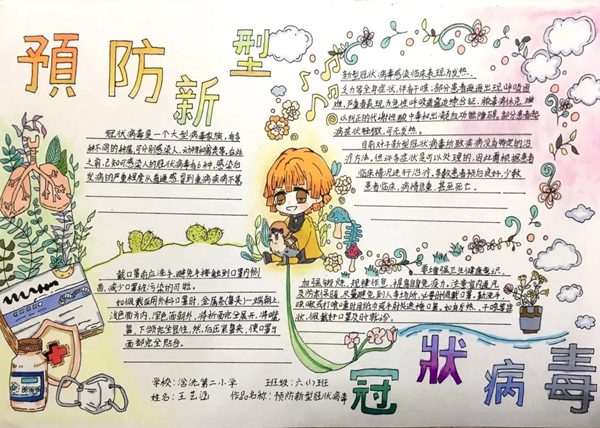 預防新型
冠狀病毒
冠状病毒是一个大型病毒家族,有多
种不同的种属,可分别感染人
之前,已知可感染人的冠状病毒有6种,感染后
发病的严重程度从普通感冒到重病肺炎不等。
新型冠状病毒感染临床表现为发热、
乏力等全身症状,伴有干咳,部分患者
难,严重者表现为急性呼吸窘迫综合征、脓毒症休克、难
以纠正的代谢性酸中毒和出凝血功能障碍,部分患者起
病症状轻微,可无发热。
目前对于新型冠状病毒所致疾病没有特定的治
疗方法,但许多症状是可以处理的,因此需根据患者
临床情况进行治疗,多数患者预后良好,少数
患者临床病情危重,甚至死亡。
戴口罩前应洗手,避免手接触到口罩内侧
面,减少口罩被污染的可能。
如佩戴医用外科口罩时,金属条(鼻夹)一端朝上,
浅色面为内,深色面朝外,将折面完全展开,将嘴、
鼻、下颌完全包住,然后压紧鼻夹,使口罩与
面部完全贴合。
要增强卫生健康意识,
加强锻炼、规律作息、提高自身免疫力,注意室内通风
及防寒保暖,尽量避免到人多场所,必要时佩戴口罩,勤洗手
咳嗽或打喷嚏时用肘部或手帕处遮掩口鼻,如有发热、干咳等症
状,佩戴好口罩及时就诊。
学校:洛池第二小学 班级:六(1)班
姓名:王艺 作品名称:预防新型冠状病毒